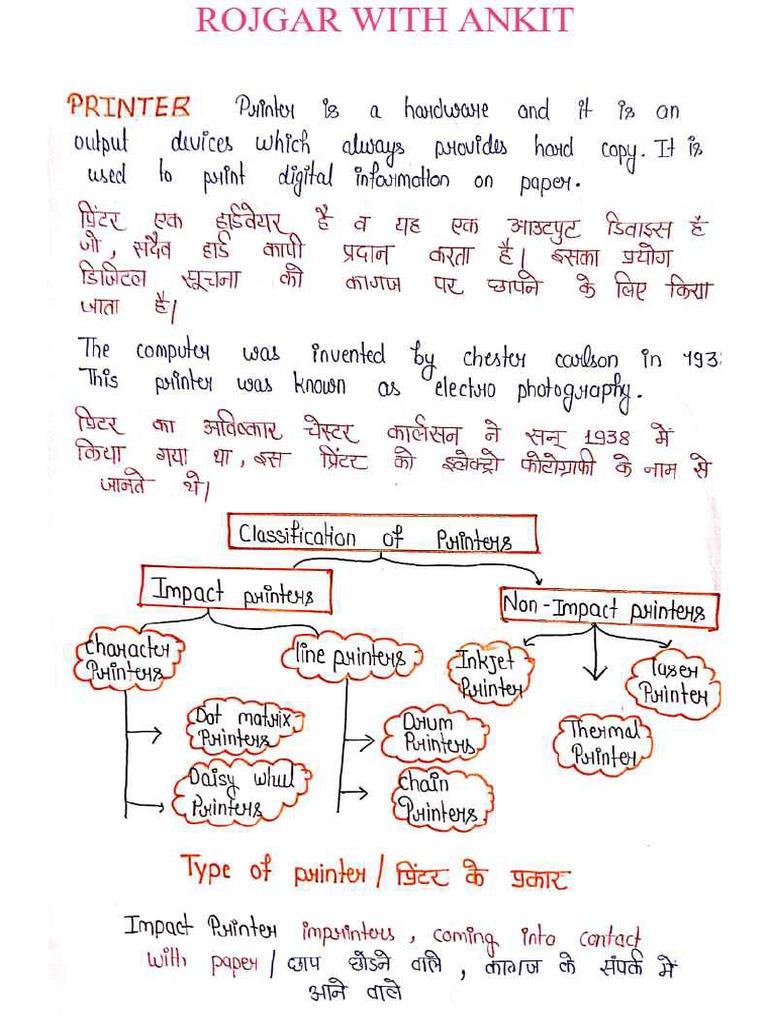 ROJGAR WITH ANKIT
PRINTER Printer is a hardware and it is an
output devices which always provides hard copy. It is
used to print digital information on paper.
प्रिंटर एक हार्डवेयर है व यह एक आउटपुट डिवाइस है
जो, सदैव हार्ड कापी प्रदान करता है। इसका प्रयोग
डिजिटल सूचना को कागज पर छापने के लिए किया
जाता है।
The computer was invented by chester carlson in 193
This printer was known as electro photography.
प्रिंटर का अविष्कार चेस्टर कार्लसन ने सन् 1938 में
किया गया था, इस प्रिंटर को इलेक्ट्रो फोटोग्राफी के नाम से
जानते थे।
Classification of Printers
Impact printers
Non-Impact printers
character
Printers
line printers
Inkjet
Printer
laser
Printer
Dot matrix
Printers
Drum
Printers
Thermal
Printer
Daisy whul
Printers
chain
Printers.
Type of printer / प्रिंटर के प्रकार
Impact Printer imprinters, coming into contact
with paper / छाप छोडने वाले, कागज के संपर्क में
आने वाले